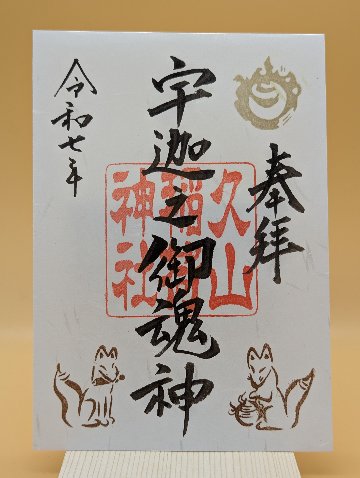 奉拝
宇迦之御魂神
久山
稲荷
神社
令和七年